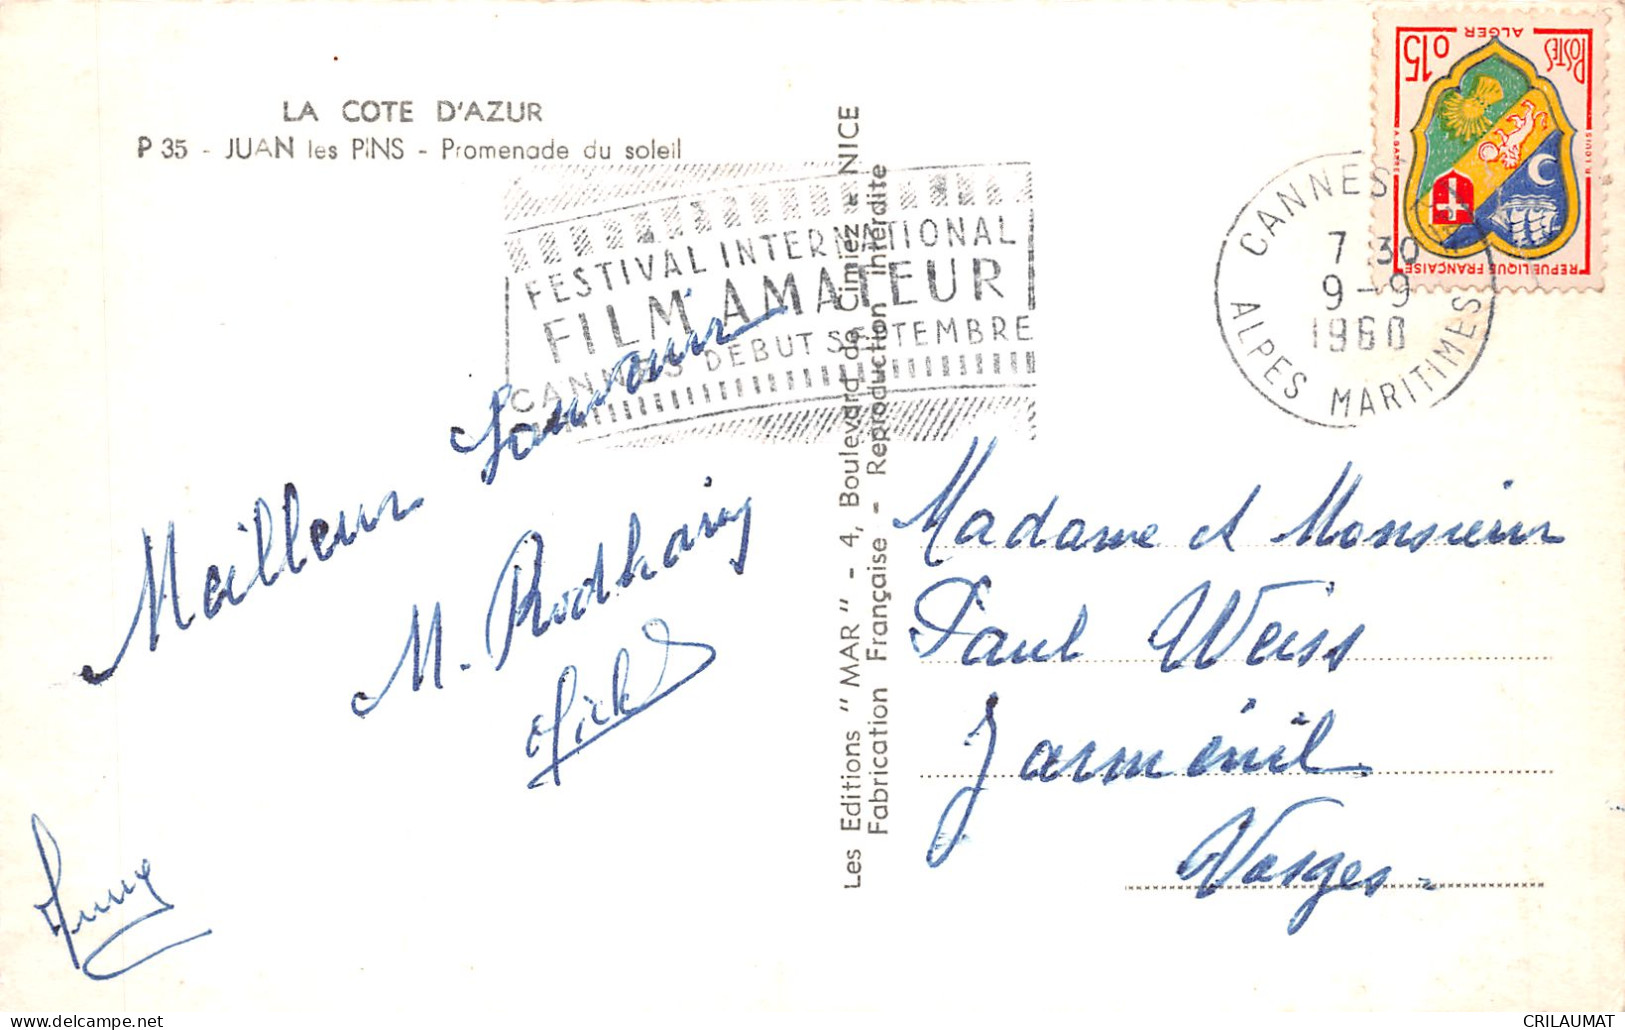 LA COTE D'AZUR
P 35 - JUAN les PINS - Promenade du soleil
FESTIVAL INTERNATIONAL
FILM AMATEUR
CANNES DEBUT SEPTEMBRE
POSTES
ALGER
0,15
REPUBLIQUE FRANÇAISE
R. LOUIS
CANNES
7 30
9-9
1960
ALPES MARITIMES
Meilleur Souvenir
Les Editions "MAR" - 4, Boulevard de Cimiez - NICE
Fabrication Française - Reproduction interdite
Madame et Monsieur
Paul Weiss
Jarménil
Vosges-
CRILAUMAT